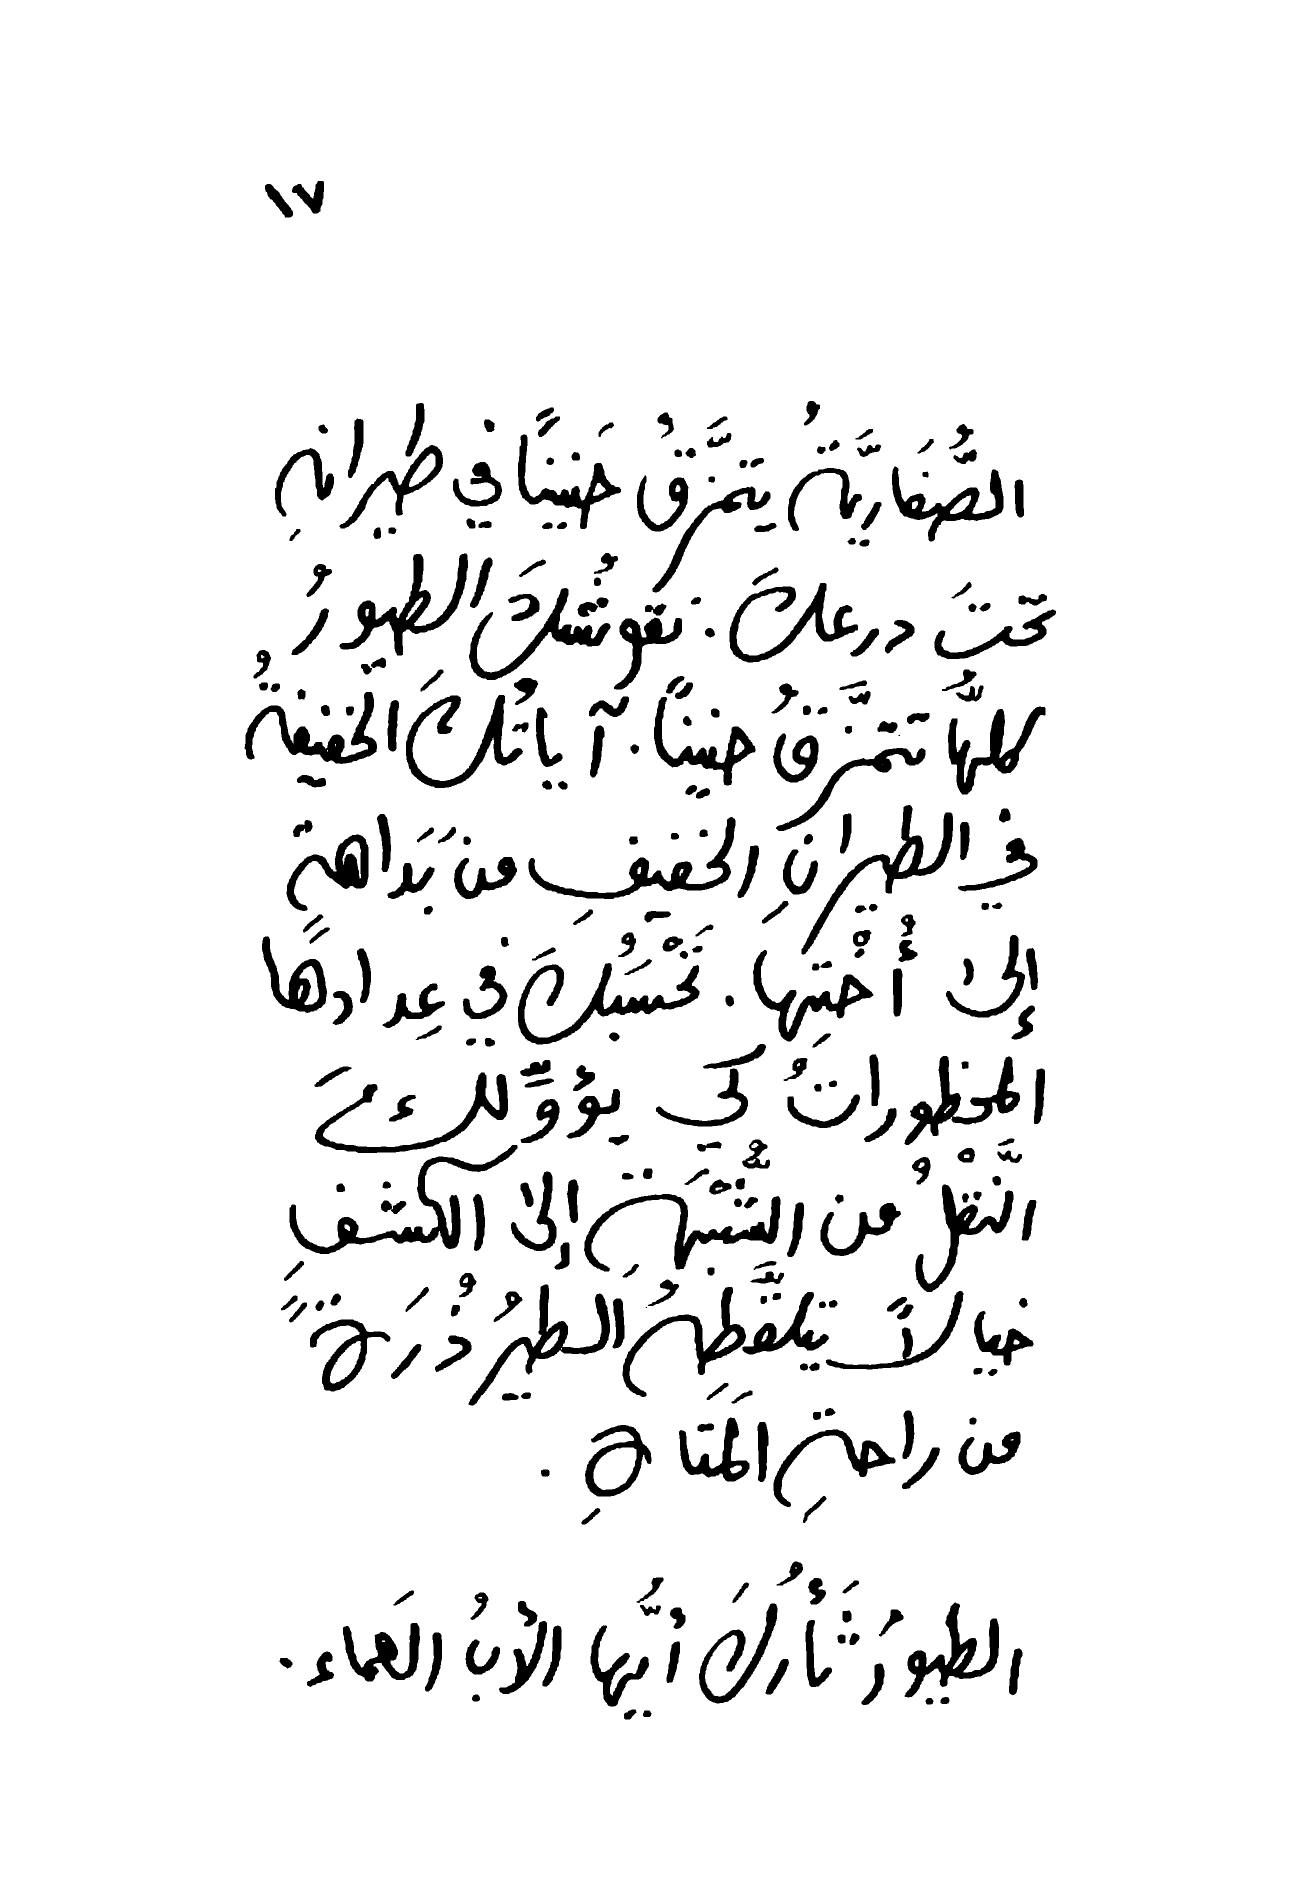 ١٧
الصُّفَاريَّةُ يتمَزَّقُ حَنينًا في طيرانهِ
تحتَ درعكَ. نقوشُكَ الطيورُ
كلهَّا تتمَزَّقُ حنينًا. آياتُكَ الخفيفةُ
في الطيرانِ الخفيفِ من بَدَاهة
إلى أُخْتِها. تَحْسَبُكَ في عِدادها
المحظوراتُ كي يؤوِّلكَ
النَّقْلُ من الشُّبْهَةِ إلى الكشفِ
خيالاً تتلقَّطِهُ الطيرُ ذُرَةً
من راحةِ المَتَاهِ.
الطيورُ ثَأْرُكَ أيُّها الأبُ العَماء.